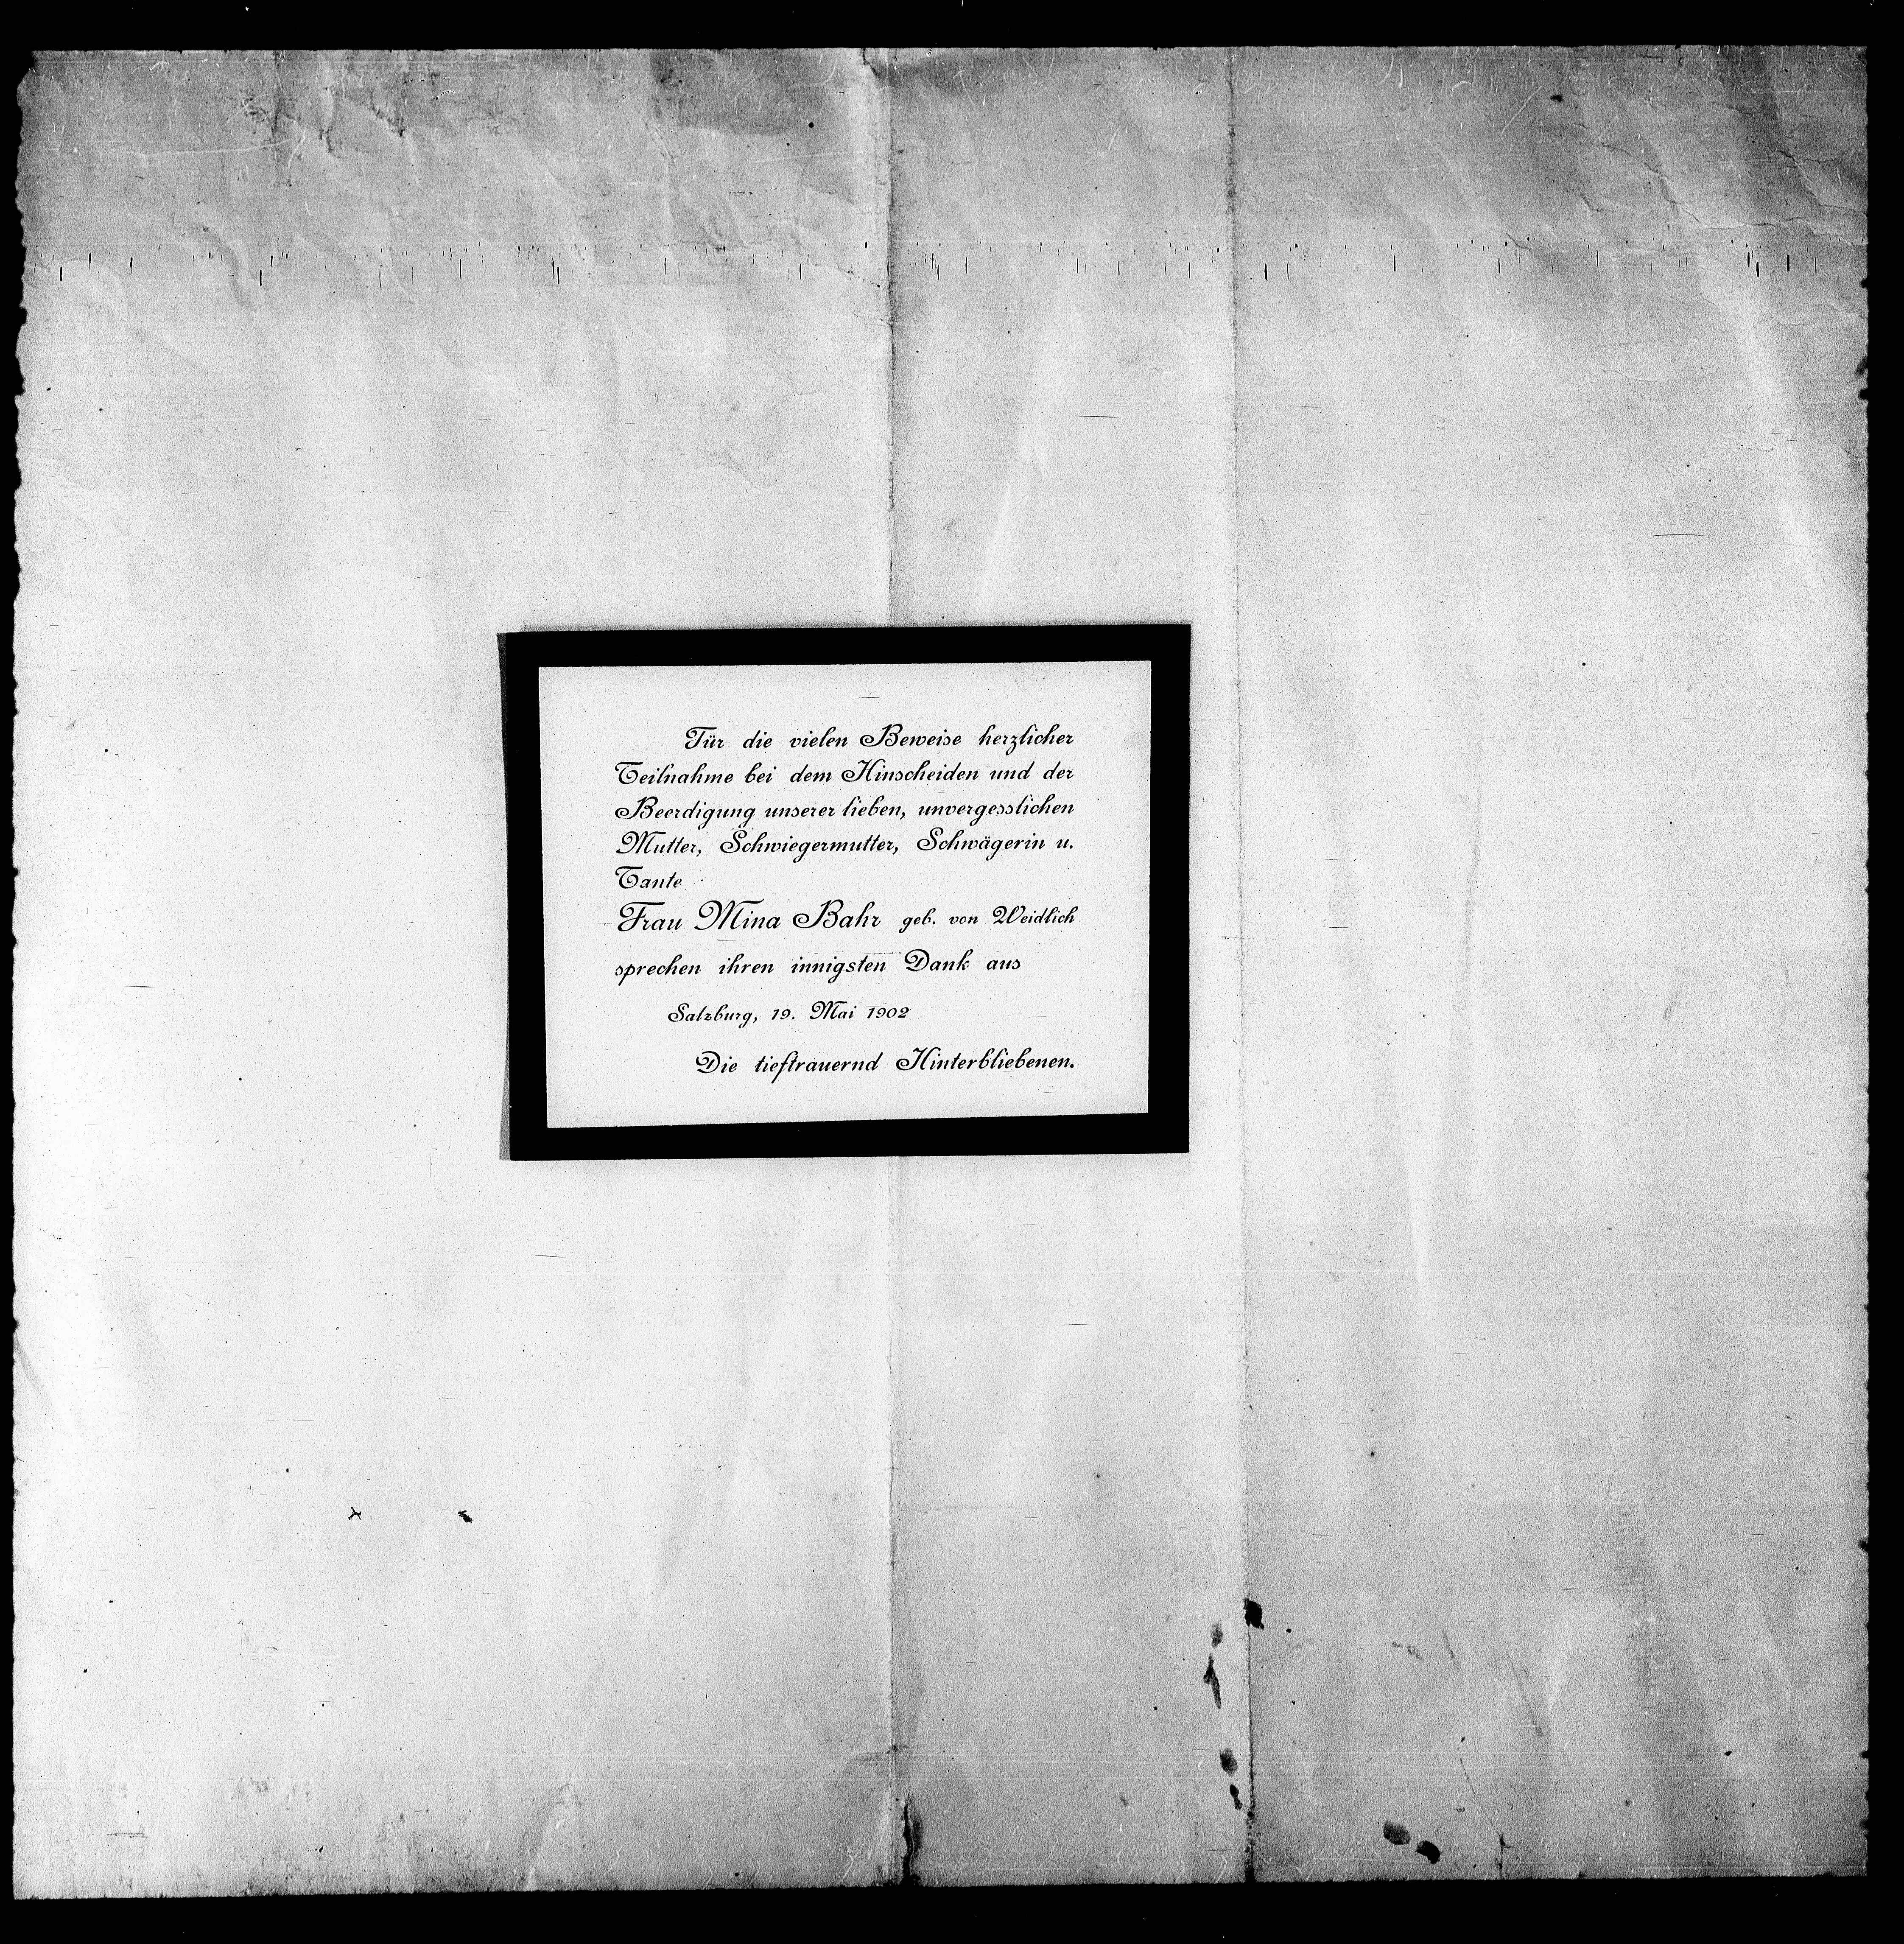 Für die vielen Beweise herzlicher
Teilnahme bei dem Hinscheiden und der
Beerdigung unserer lieben, unvergesslichen
Mutter, Schwiegermutter, Schwägerin u.
Tante
Frau Mina Bahr geb. von Weidlich
sprechen ihren innigsten Dank aus
Salzburg, 19. Mai 1902
Die tieftrauernd Hinterbliebenen.